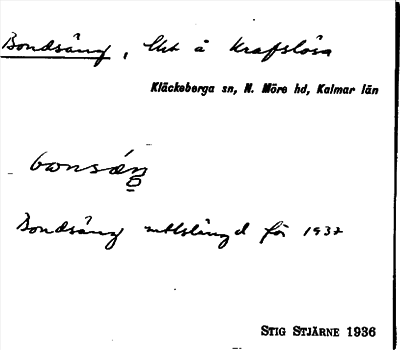 Bondsäng, lht å Krafslösa
Kläckeberga sn, N. Möre hd, Kalmar län
bωnsáŋ
Bondsäng mtlslängd för 1932
STIG STJÄRNE 1936